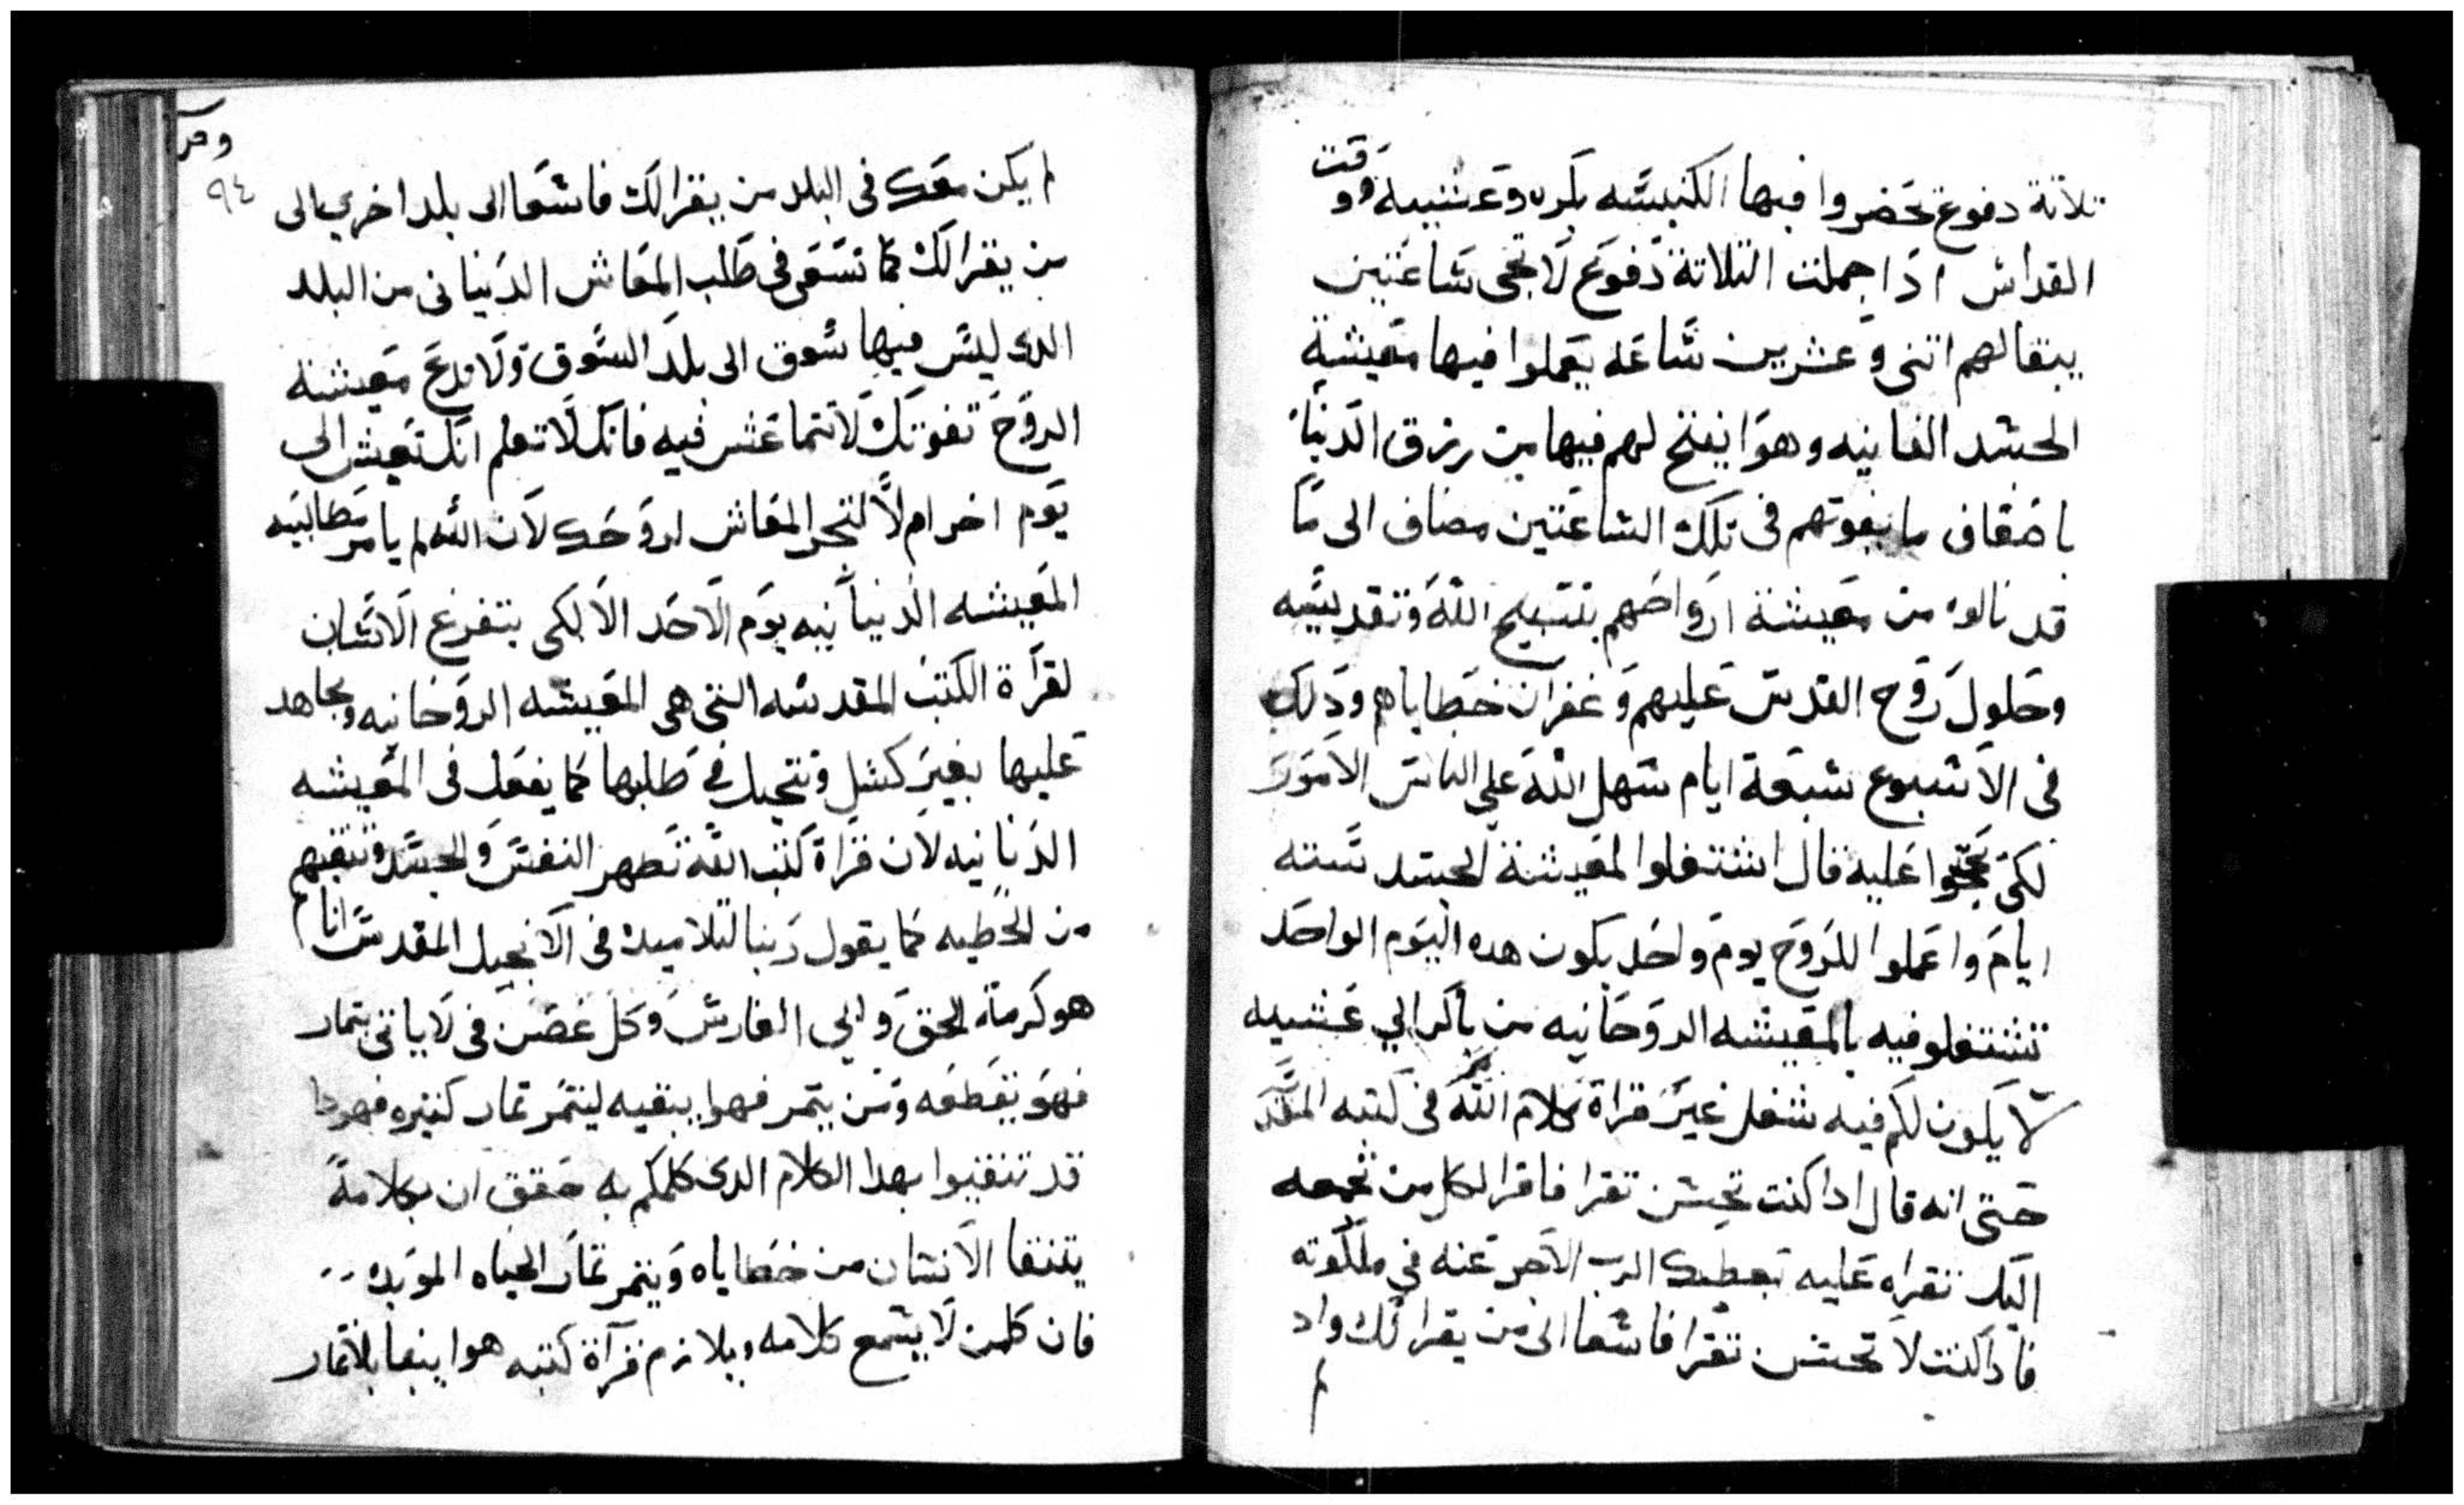 تلاتة دفوع تحضروا فيها الكنيسه بكره وعشيه ووقت
القداس اذا جملت التلاتة دفوع لا تجي ساعتين
يبقا لهم اتنى وعشرين ساعه يعملوا فيها معيشة
الجسد الفانيه وهوا يفتح لهم فيها من رزق الدنيا
باضعاف ما يفوتهم فى تلك الساعتين مضاف الى ما
قد نالوه من معيشة ارواحهم بتسبيح الله وتقديسه
وحلول روح القدس عليهم وغفران خطاياهم ودلك
فى الاسبوع سبعة ايام سهل الله على الناس الامور
لكى عليه قال اشتغلوا لمعيشة الجسد سته
ايام واعملوا للروح يوم واحد يكون هده اليوم الواحد
تشتغلو فيه بالمعيشه الروحانيه من باكر الي عشيه
لا يكون لكم فيه شغل غير قراة كلام الله فى كتبه المقدسه
حتى انه قال ادا كنت تحسن تقرا فاقرا لكل من تجمعه
اليك تقراه عليه يعطيك الرب الاجر عنه في ملكوته
فادا كنت لا تحسن تقرا فاسعا الى من يقرا لك واد
لم
وحر
٩٤
لم يكن معك فى البلد من يقرا لك فاسعا الى بلد اخرى الى
من يقرا لك كما تسعى فى طلب المعاش الدنيانى من البلد
الدى ليس فيها سوق الى بلد السوق ولا تدع معيشة
الروح تفوتك لاتتماعس فيه فانك لا تعلم انك تعيش الى
يوم اخر ام لا لتجد المعاش لروحك لان الله لم يامر بمطالبيه
المعيشه الدنيانيه يوم الاحد الا لكى يتفرغ الانسان
لقرآة الكتب المقدسه التى هى المعيشه الروحانيه ويجاهد
عليها بغير كسل وتتحيل فى طلبها كما يفعل فى المعيشه
الدنيانيه لان قراة كتب الله تطهر النفس والجسد وتنقيهم
من الخطيه كما يقول ربنا لتلاميده فى الانجيل المقدس انا
هو كرمة الحق وابي الغارس وكل غصن فى لا ياتى بتمار
فهو يقطعه ومن يتمر فهوا ينقيه ليتمر تمار كتيره فهودا
قد تنقيتوا بهدا الكلام الدى كلمكم به حقق ان بكلامة
يتنقا الانسان من خطاياه ويتمر تمار الحياه الموبده
فان كلمن لا يسمع كلامه ويلازم قرآة كتبه هوا يبقا بلا تمار